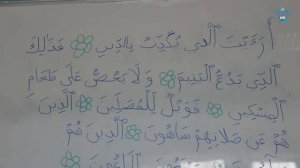 أَرَءَيْتَ ٱلَّذِي يُكَذِّبُ بِالدِّينِ فَذَٰلِكَ
ٱلَّذِي يَدُعُّ ٱلْيَتِيمَ وَلَا يَحُضُّ عَلَىٰ طَعَامِ
ٱلْمِسْكِينِ فَوَيْلٌ لِّلْمُصَلِّينَ ٱلَّذِينَ
هُمْ عَن صَلَاتِهِمْ سَاهُونَ ٱلَّذِينَ هُمْ